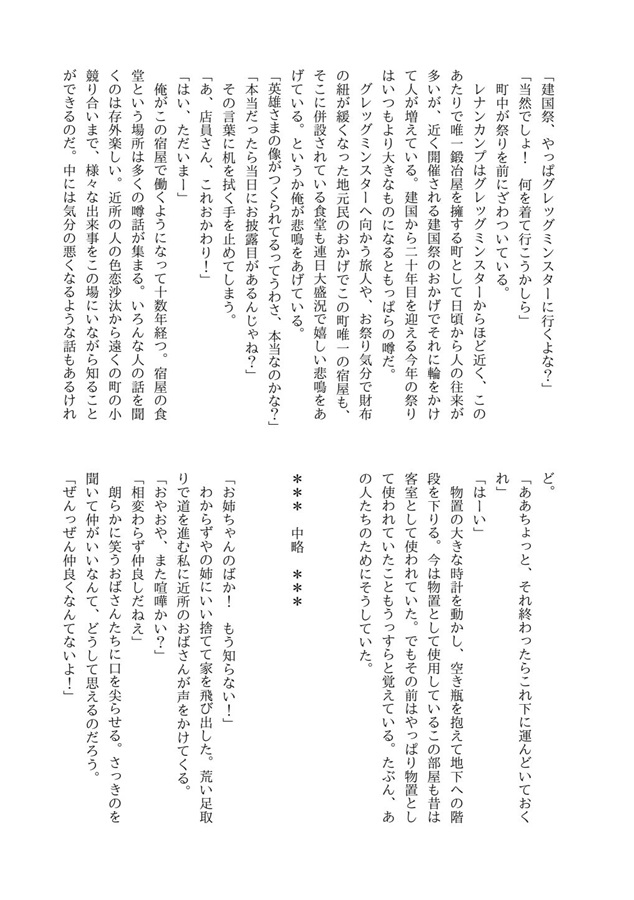 「建国祭、やっぱグレッグミンスターに行くよな?」
「当然でしょ! 何を着て行こうかしら」
 町中が祭りを前にざわついている。
 レナンカンプはグレッグミンスターからほど近く、この
あたりで唯一鍛冶屋を擁する町として日頃から人の往来が
多いが、近く開催される建国祭のおかげでそれに輪をかけ
て人が増えている。建国から二十年目を迎える今年の祭り
はいつもより大きなものになるともっぱらの噂だ。
 グレッグミンスターへ向かう旅人や、お祭り気分で財布
の紐が緩くなった地元民のおかげでこの町唯一の宿屋も、
そこに併設されている食堂も連日大盛況で嬉しい悲鳴をあ
げている。というか俺が悲鳴をあげている。
「英雄さまの像がつくられてるってうわさ、本当なのかな?」
「本当だったら当日にお披露目があるんじゃね?」
 その言葉に机を拭く手を止めてしまう。
「あ、店員さん、これおかわり!」
「はい、ただいまー」
 俺がこの宿屋で働くようになって十数年経つ。宿屋の食
堂という場所は多くの噂話が集まる。いろんな人の話を聞
くのは存外楽しい。近所の人の色恋沙汰から遠くの町の小
競り合いまで、様々な出来事をこの場にいながら知ること
ができるのだ。中には気分の悪くなるような話もあるけれ
ど。
「ああちょっと、それ終わったらこれ下に運んどいておく
れ」
「はーい」
 物置の大きな時計を動かし、空き瓶を抱えて地下への階
段を下りる。今は物置として使用しているこの部屋も昔は
客室として使われていた。でもその前はやっぱり物置とし
て使われていたこともうっすらと覚えている。たぶん、あ
の人たちのためにそうしていた。
*** 中略 ***
「お姉ちゃんのばか! もう知らない!」
 わからずやの姉にいい捨てて家を飛び出した。荒い足取
りで道を進む私に近所のおばさんが声をかけてくる。
「おやおや、また喧嘩かい?」
「相変わらず仲良しだねえ」
 朗らかに笑うおばさんたちに口を尖らせる。さっきのを
聞いて仲がいいなんて、どうして思えるのだろう。
「ぜんっぜん仲良くなんてないよ!」